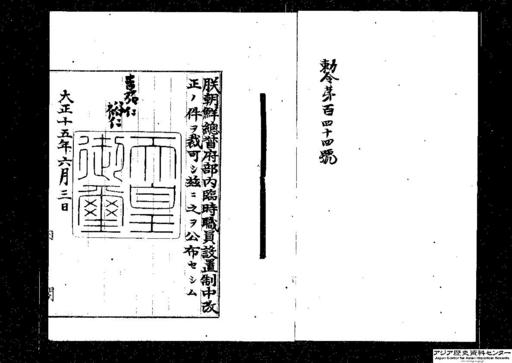 勅令第百四十四號
朕朝鮮總督府部内臨時職員設置制中改
正ノ件ヲ裁可シ玆ニ之ヲ公布セシム
嘉仁
裕仁
天皇御璽
大正十五年六月三日
内閣
アジア歴史資料センター
Japan Center for Asian Historical Records